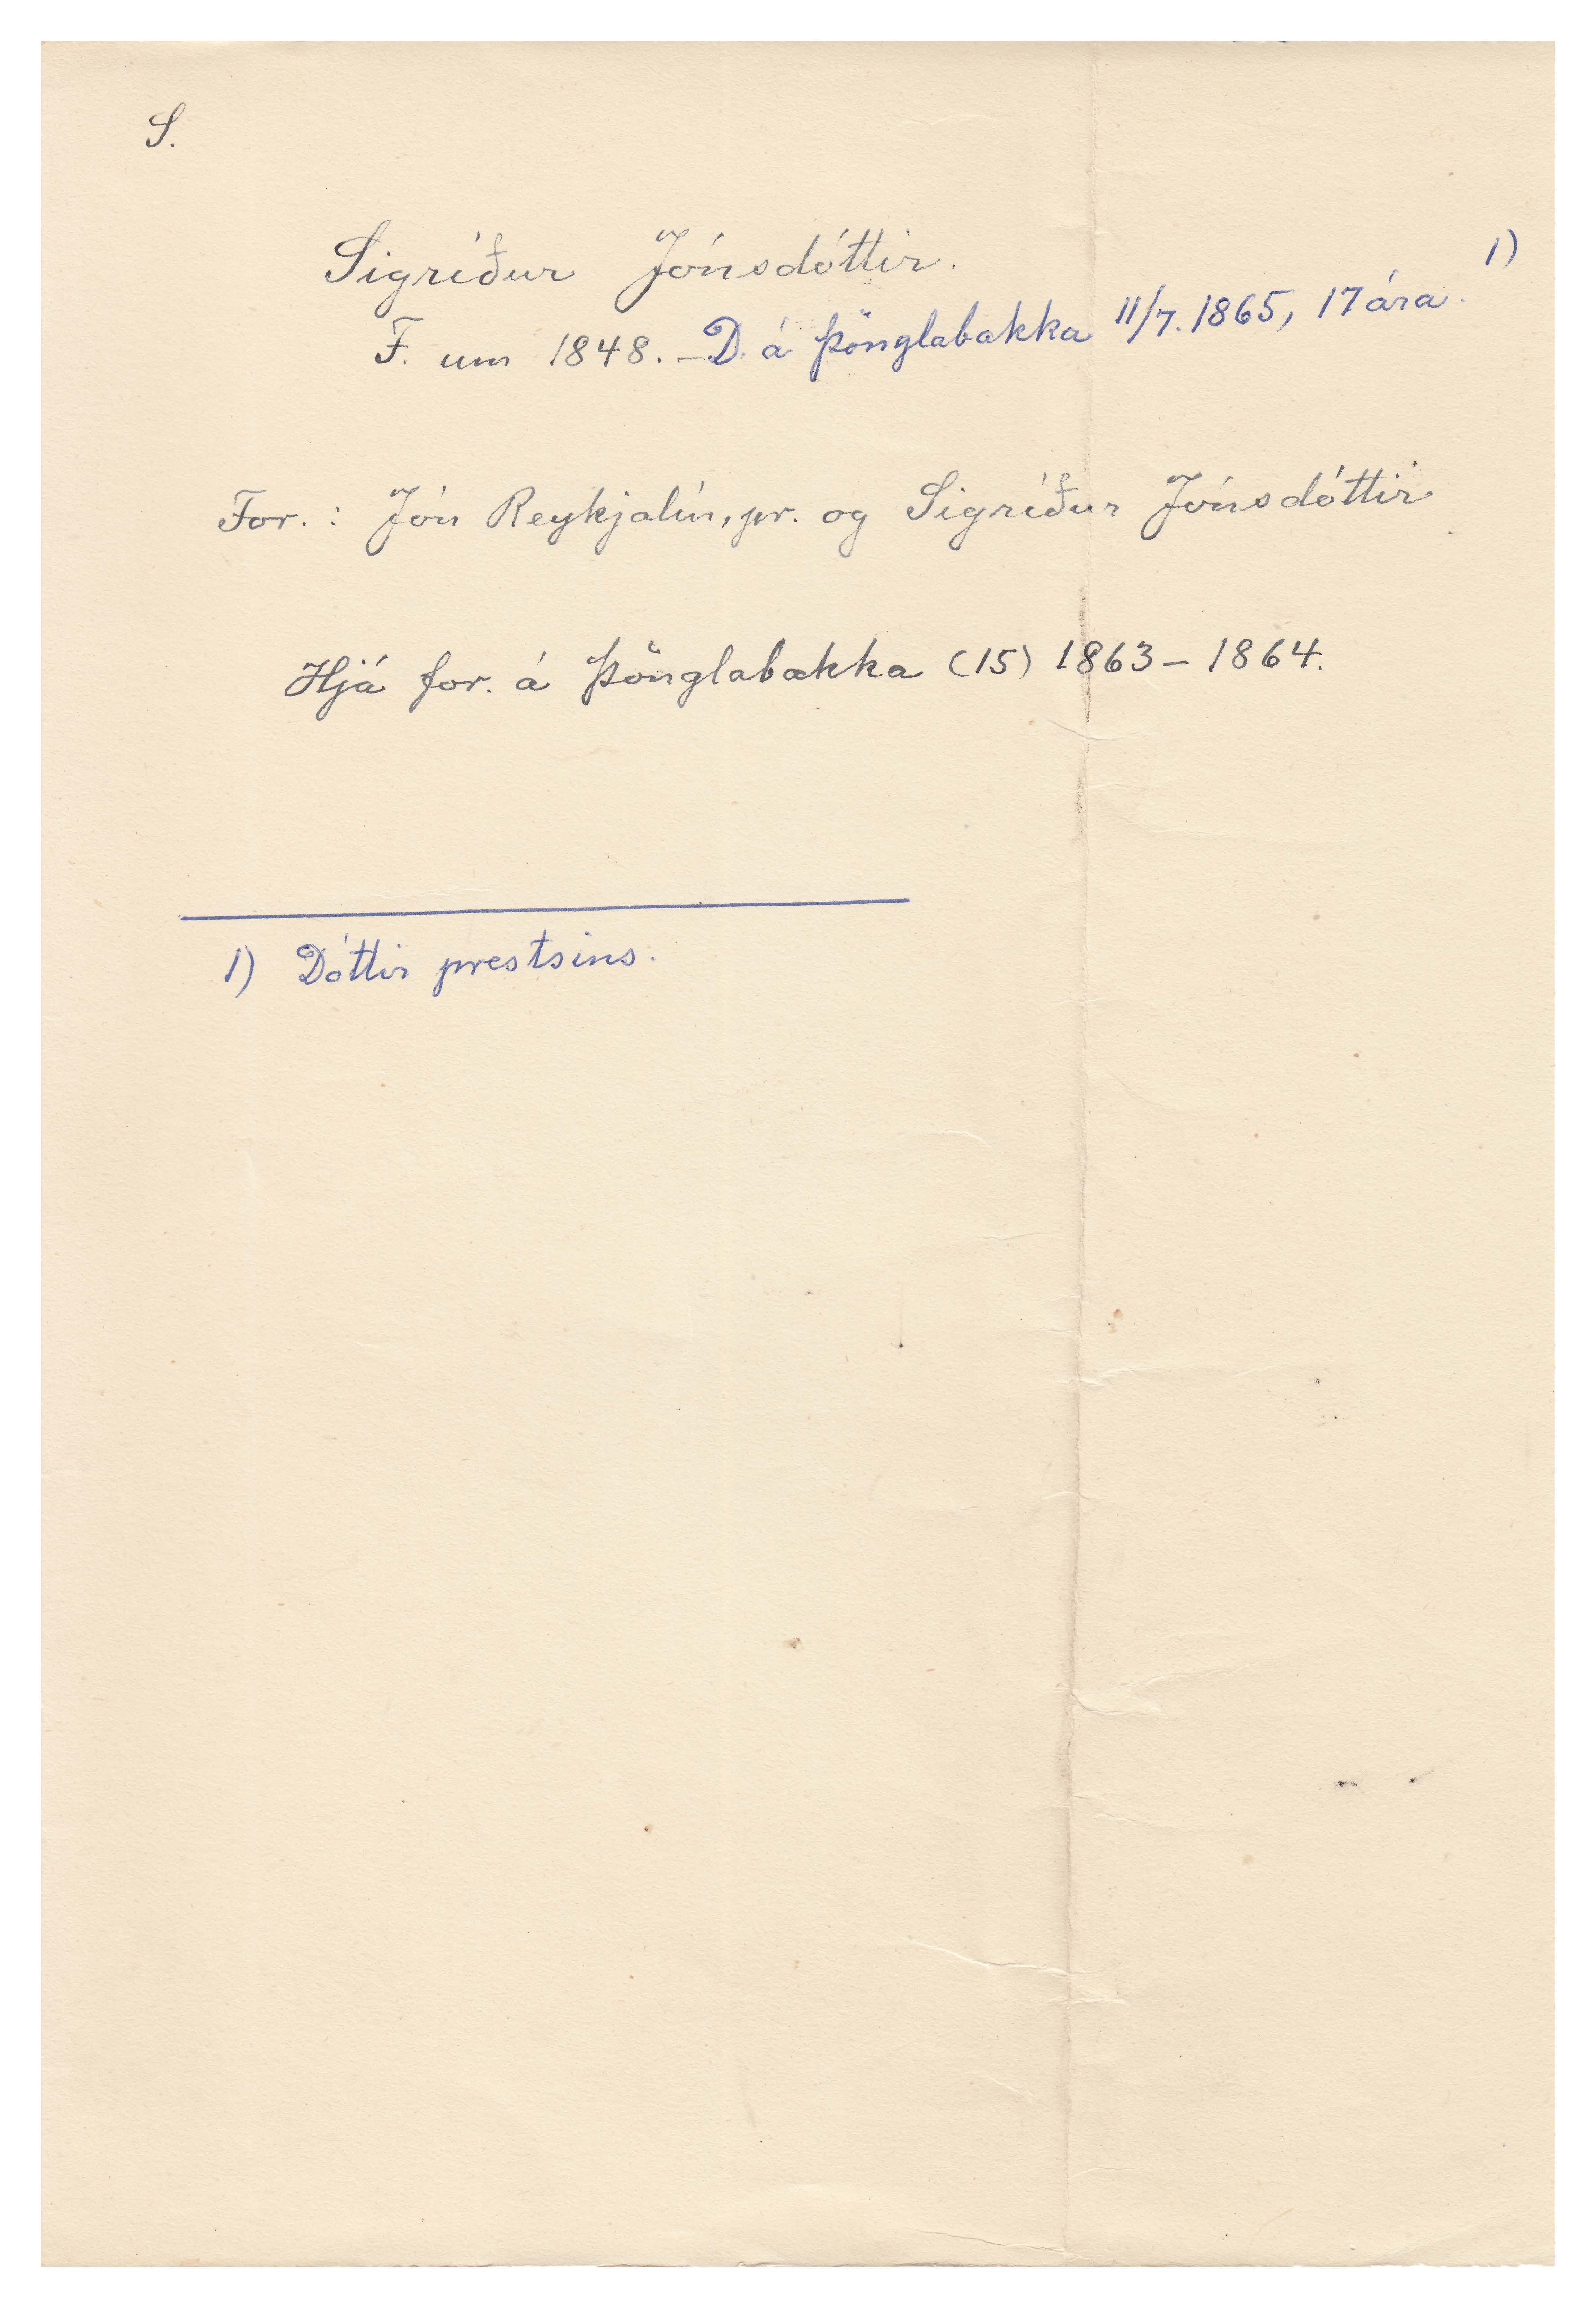 S.
Sigríður Jónsdóttir.
F. um 1848. – D. á Þönglabakka 11/7. 1865, 17 ára. 1)
For.: Jón Reykjalín, pr. og Sigríður Jónsdóttir
Hjá for. á Þönglabakka (15) 1863 – 1864.
1) Dóttir prestsins.